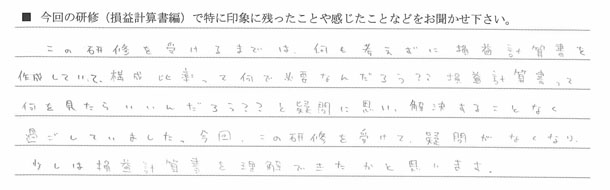 ■ 今回の研修（損益計算書編）で特に印象に残ったことや感じたことなどをお聞かせ下さい。
この研修を受けるまでは、何も考えずに損益計算書を
作成していて、構成比率って何で必要なんだろう？？損益計算書って
何を見たらいいんだろう？？と疑問に思い、解決することなく
過ごしていました。今回、この研修を受けて、疑問がなくなり、
少しは損益計算書を理解できたかと思います。